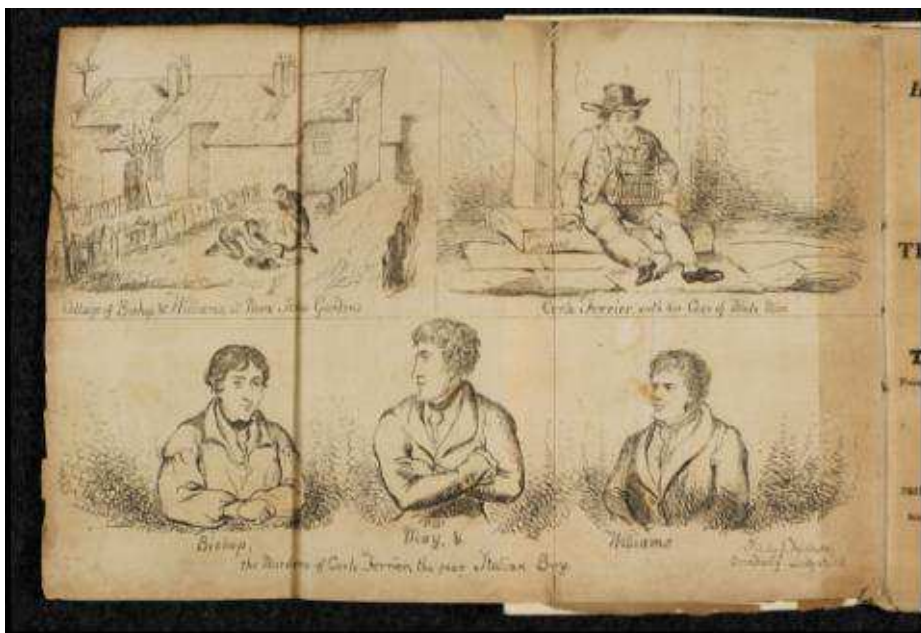 Cottage of Bishop & Williams, in Nova Scotia Gardens
Carlo Ferrier, with his Cage of White Mice
Bishop,
May, &
Williams
the Murders of Carlo Ferrier, the poor Italian Boy.